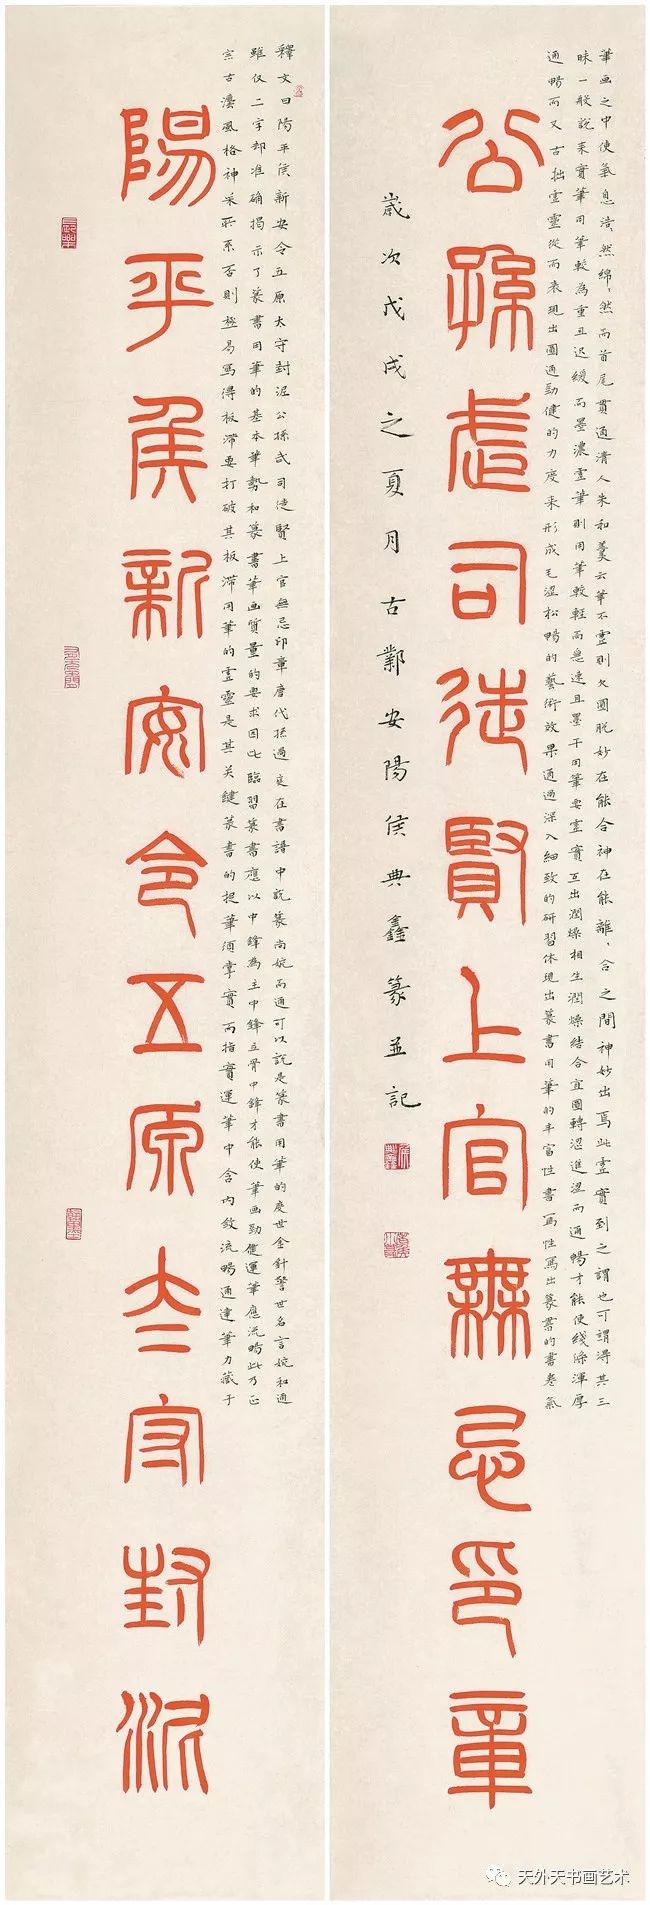 陽平侯新安令五原太守封泥
釋文曰陽平侯新安令五原太守封泥公孫武司徒賢上官無忌印章唐代孫過庭在書譜中說篆尚婉而通可以說是篆書用筆的度世金針警世名言婉和通
雖仅二字却准确揭示了篆書用筆的基本筆勢和篆書筆画質量的要求因此臨習篆書應以中鋒為主中鋒立骨中鋒才能使筆画勁健運筆應流暢此乃正
宗古灋風格神采所系否則極易寫得板滯要打破其板滯用筆的虛靈是其关鍵篆書的把筆須掌實而指實運筆中含内斂流暢通達筆力藏于
公孫武司徒賢上官無忌印章
筆画之中使氣息浩然綿々然而首尾貫通清人朱和羹云筆不虛則欠圓脱妙在能合神在能離々合之間神妙出焉此虛實到之謂也可謂得其三
昧一般說来實筆用筆較為重且迟緩而墨濃虛筆則用筆較輕而急速且墨干用筆要虛實互出潤燥相生潤燥結合宜圓轉澀進澀而通暢才能使綫條渾厚
通暢而又古拙虛靈從而表現出圓通勁健的力度来形成毛澀松暢的藝術效果通過深入細致的研習体現出篆書用筆的丰富性書寫性寫出篆書的書卷氣
歲次戊戌之夏月古鄴安陽侯典鑫篆並記
天外天书画艺术